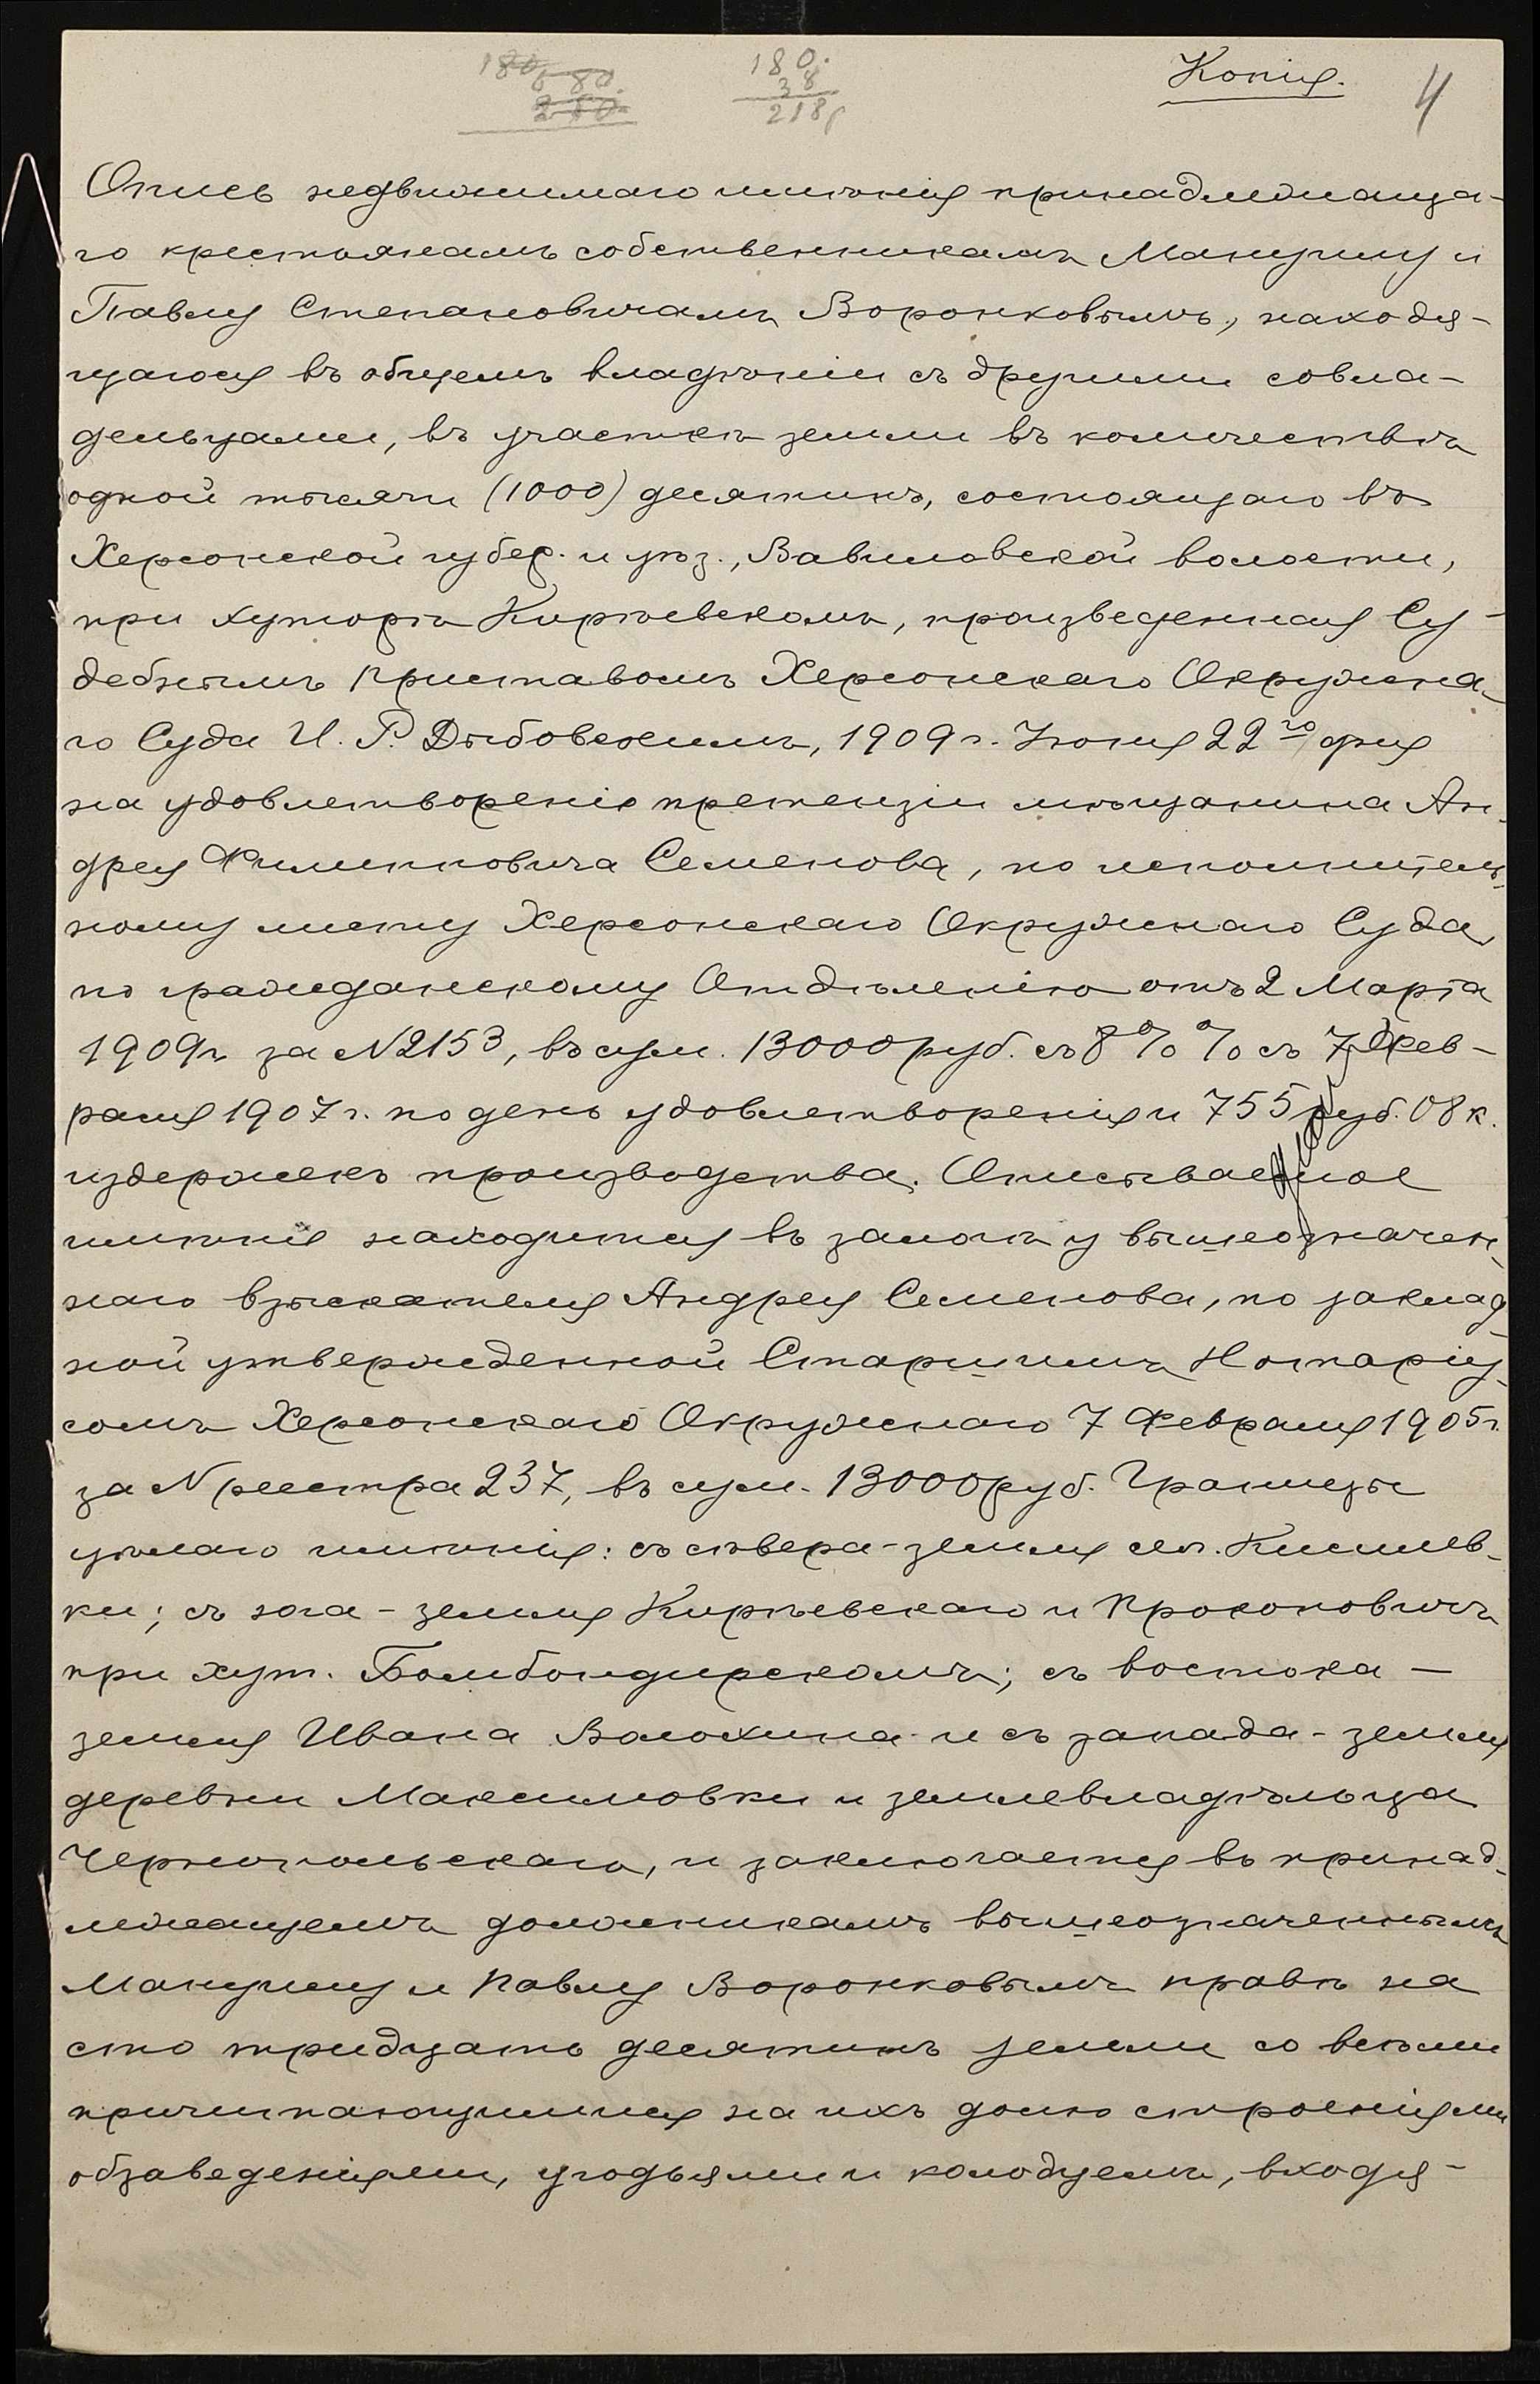 180. 180. Копія. 4
80. 38
260 218р
Опись недвижимаго имѣнія принадлежаща-
го крестьянамъ собственникамъ Мануилу и
Павлу Степановичамъ Воронковымъ, находя-
щагося въ общемъ владѣніи съ другими совла-
дельцами, въ участкѣ земли въ количествѣ
одной тысячи (1000) десятинъ, состоящаго въ
Херсонской губер. и уѣз., Вавиловской волости,
при хуторѣ Кирѣевскомъ, произведенная Су-
дебнымъ Приставомъ Херсонскаго Окружна-
го Суда И. Р. Дыбовскимъ, 1909 г. Іюня 22го дня
на удовлетвореніе претензіи мѣщанина Ан-
дрея Филипповича Семенова, по исполнитель-
ному листу Херсонскаго Окружнаго Суда,
по гражданскому Отдѣленію отъ 2 Марта
1909 г. за N 2153, въ сум. 13000 руб. съ 8% % съ 7 Фев-
раля 1907 г. по день удовлетворенія и 755 руб. 08 к.
издержекъ производства. Описываемое
имѣніе находится въ залогѣ у вышеозначен-
наго взыскателя Андрея Семенова, по заклад-
ной утвержденной Старшимъ Нотаріу-
сомъ Херсонскаго Окружнаго 7 Февраля 1905 г.
за N реестра 237, въ сум. 13000 руб. Границы
цѣлаго имѣнія: съ сѣвера - земля сел. Кисилев-
ки; съ юга - земля Кирѣевскаго и Прокоповичъ
при хут. Бомбондирскомъ; съ востока -
земля Ивана Волохина и съ запада - земля
деревни Максимовки и землевладѣльца
Чернопольскаго, и заключается въ принад-
лежащемъ должникамъ вышеозначеннымъ
Мануилу и Павлу Воронковымъ правѣ на
сто тридцать десятинъ земли со всѣми
причитающимися на ихъ долю строеніями
обзаведеніями, угодьями и колодцемъ, входя-